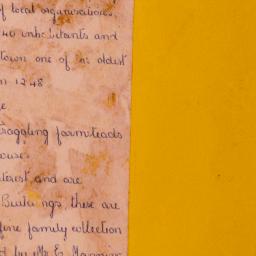 f local organisations.
40 inhabitants and
town one of its oldest
n 1248
e
raggling farmsteads
ouse.
terest, and are
Buildings, these are
fine family collection
by Mr E.